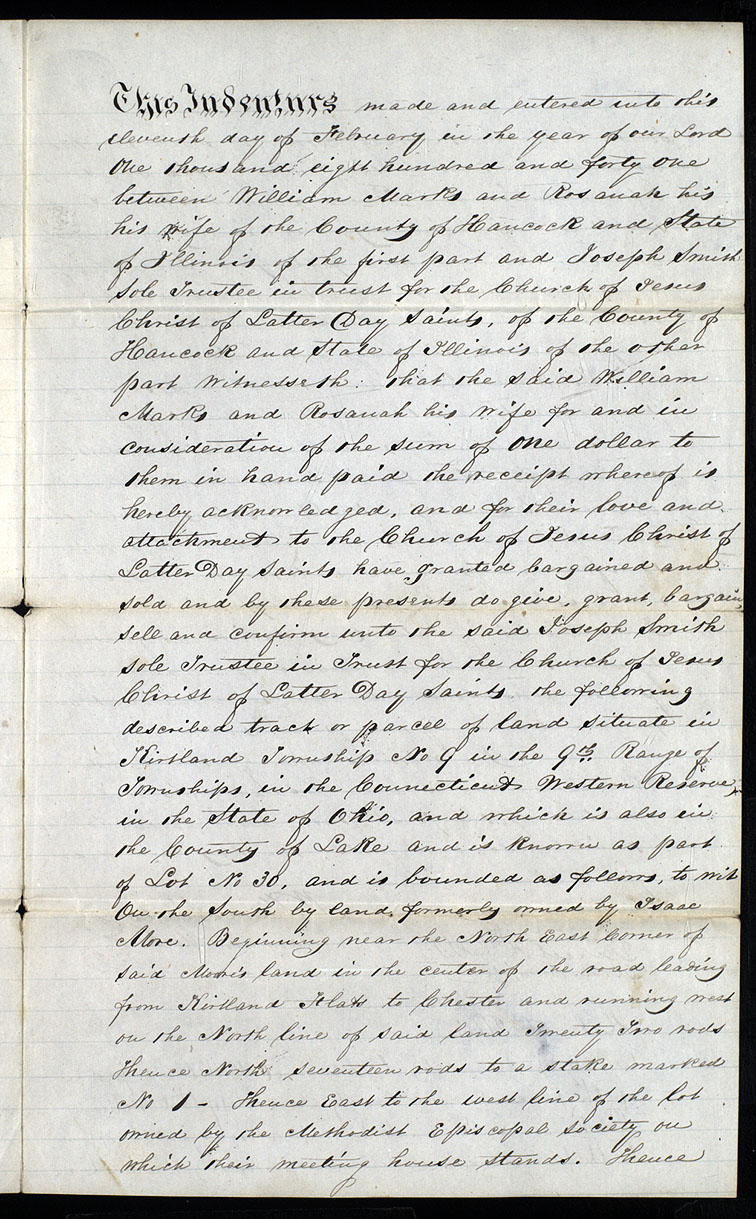 This Indenture made and entered into this
eleventh day of February in the year of our Lord
One thousand eight hundred and forty one
between William Marks and Rosanah his
his wife of the County of Hancock and State
of Illinois of the first part and Joseph Smith
sole Trustee in trust for the Church of Jesus
Christ of Latter Day Saints, of the County of
Hancock and State of Illinois of the other
part Witnesseth: that the said William
Marks and Rosanah his wife for and in
consideration of the sum of One dollar to
them in hand paid the receipt whereof is
hereby acknowledged, and for their love and
attachment to the Church of Jesus Christ of
Latter Day Saints have granted bargained and
sold and by these presents do give, grant, bargain,
sell and confirm unto the said Joseph Smith
sole Trustee in Trust for the Church of Jesus
Christ of Latter Day Saints. the following
described track or parcel of land situate in
Kirtland Township No 9 in the 9th Range of
Townships, in the Connecticut Western Reserve,
in the State of Ohio, and which is also in
the County of Lake and is known as part
of Lot No 30, and is bounded as follows, to wit
On the South by land, formerly owned by Isaac
More. Beginning near the North East Corner of
said More's land in the center of the road leading
from Kirtland Flats to Chester and running west
on the North line of said land Twenty Two rods
thence North seventeen rods to a stake marked
No 1 - thence East to the west line of the lot
owned by the Methodist Episcopal society on
which their meeting house stands. Thence